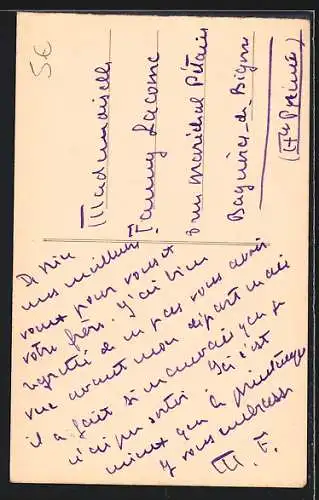 5€
Mademoiselle
Fanny Lacome
rue Maréchal Pétain
Bagnères-de-Bigorre
(Htes Pyrénées)
De Nice
mes meilleurs
vœux pour vous et
votre frère. J'ai bien
regretté de ne pas vous avoir
vue avant mon départ mais
il a fait si mauvais que je
n'ai pu sortir. Ici c'est
mieux que le printemps
Je vous embrasse
M. F.